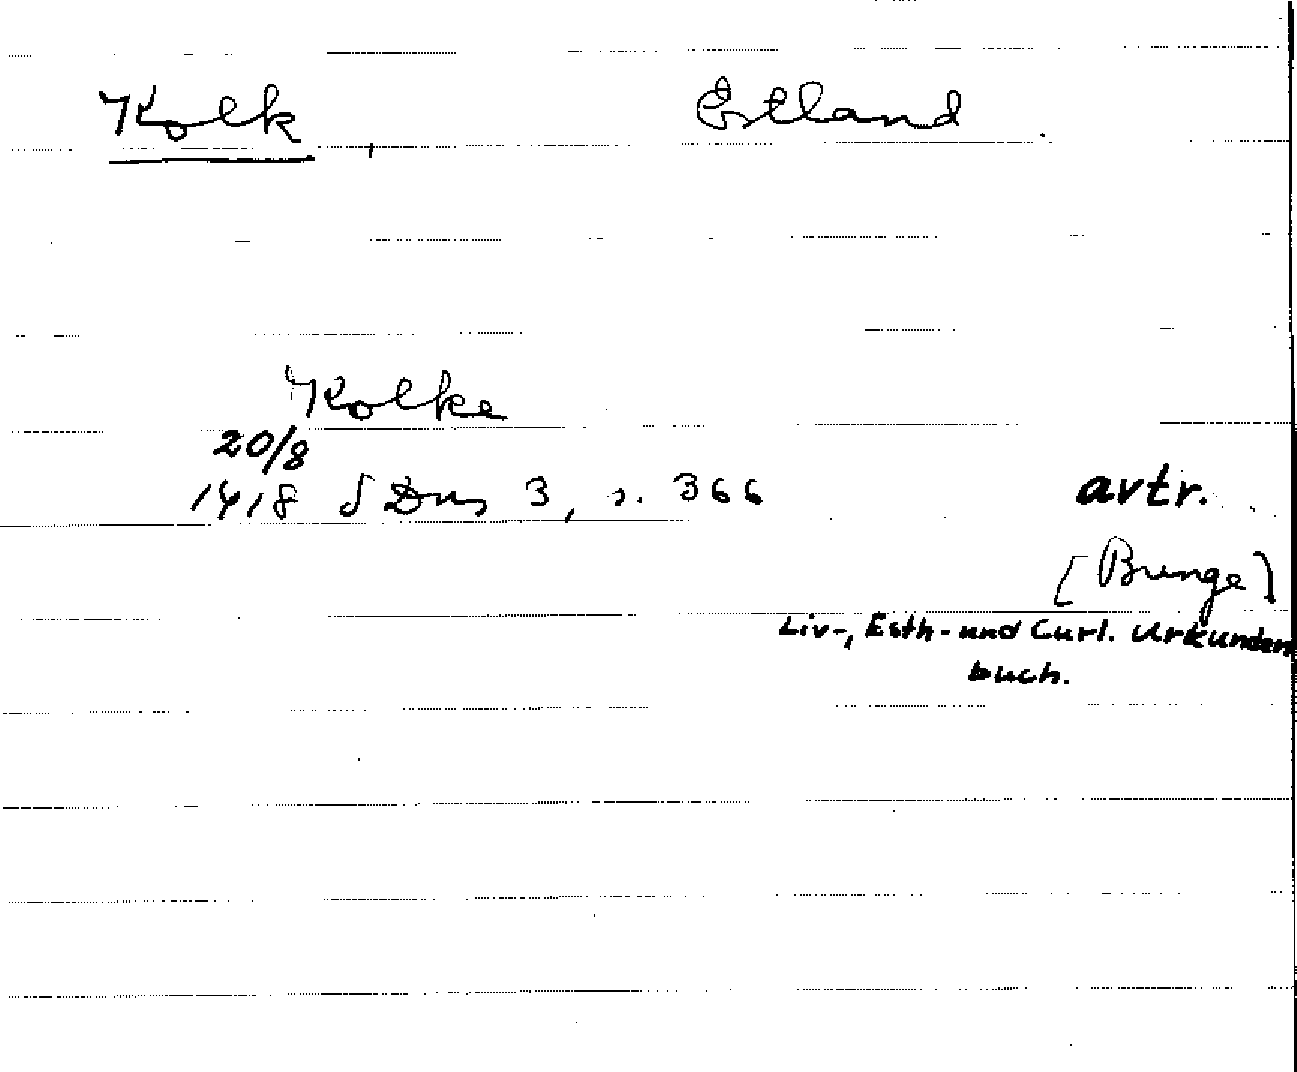 Kolk, Estland
Kolke
20/8
1418 SDns 3, s. 366 avtr.
[Bunge]
Liv-, Esth- und Curl. Urkunden
buch.